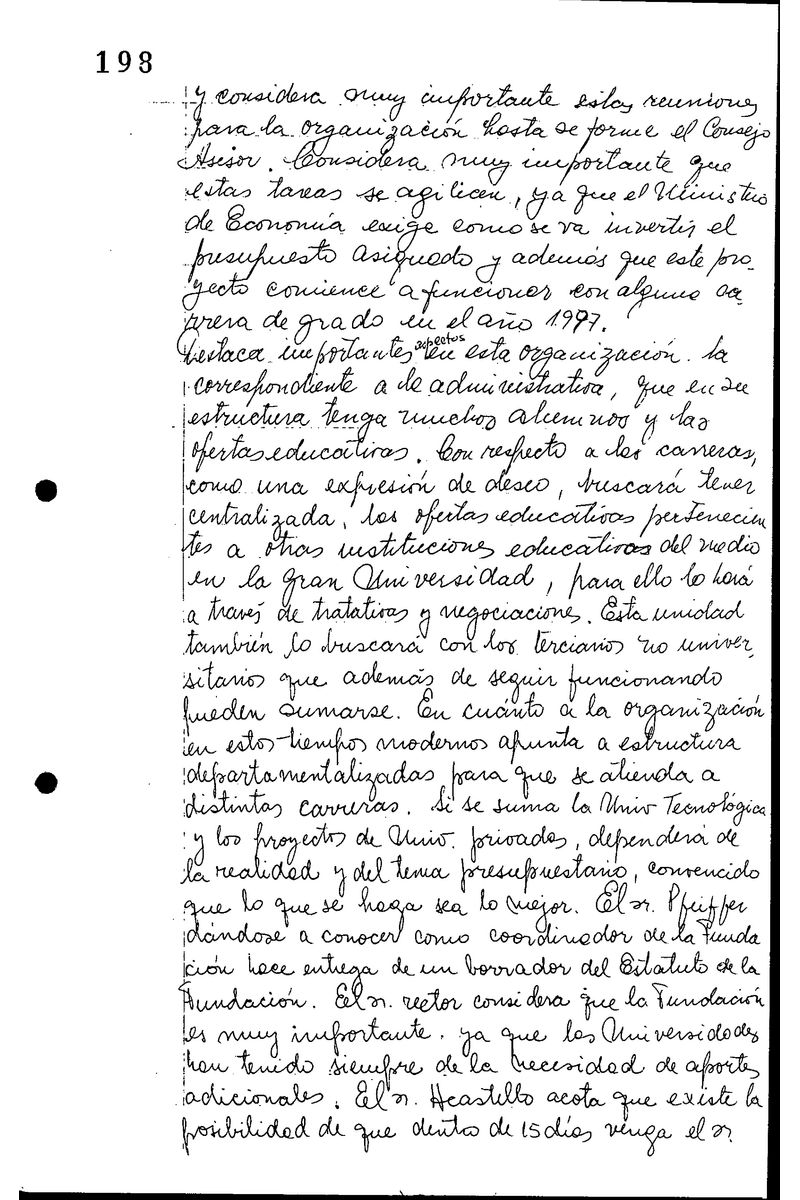 198
y considera muy importante estas reuniones
para la organización hasta se forme el Consejo
Asesor. Considera muy importante que
estas tareas se agilicen, ya que el Ministerio
de Economía exige como se va invertir el
presupuesto asignado y además que este pro-
yecto comience a funcionar con alguna ca
rrera de grado en el año 1997.
Destaca importantes aspectos en esta organización. la
correspondiente a lo administrativa, que en su
estructura tenga muchos alumnos y las
ofertas educativas. Con respecto a las carreras,
como una expresión de deseo, buscará tener
centralizada, las ofertas educativas pertenecien
tes a otras instituciones educativas del medio
en la gran Universidad, para ello lo hará
a través de tratativas y negociaciones. Esta unidad
también lo buscará con los terciarios no univer-
sitarios que además de seguir funcionando
pueden sumarse. En cuánto a la organización
en estos tiempos modernos apunta a estructura
departamentalizadas para que se atienda a
distintas carreras. Si se suma la Univ Tecnológica
y los proyectos de Univ. privadas, dependerá de
la realidad y del tema presupuestario, convencido
que lo que se haga sea lo mejor. El sr. Pfeiffer
dándose a conocer como coordinador de la Funda
ción hace entrega de un borrador del Estatuto de la
Fundación. El sr. rector considera que la Fundación
es muy importante. ya que las Universidades
han tenido siempre de la necesidad de aportes
adicionales. El sr. acota que existe la
posibilidad de que dentro de 15 días venga el sr